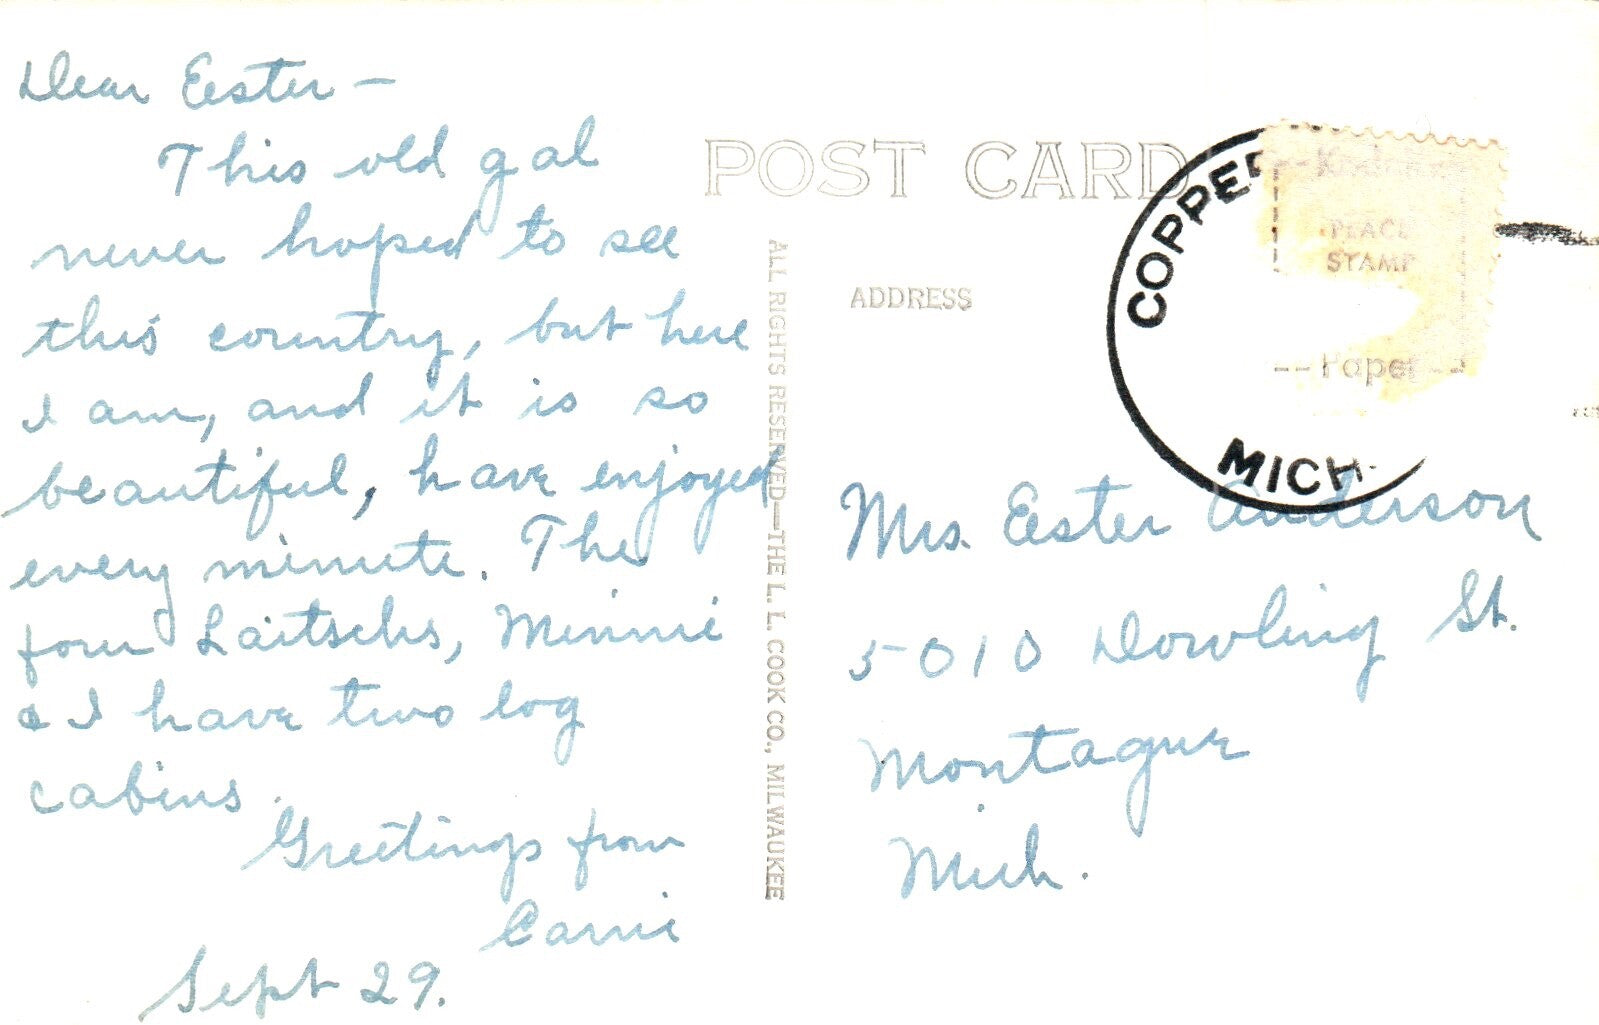 Dear Eester —
This old gal
never hoped to see
this country, but here
I am, and it is so
beautiful, have enjoyed
every minute. The
four Laitschs, Minnie
& I have two log
cabins.
Greetings from
Carrie
Sept 29.
POST CARD
ADDRESS
ALL RIGHTS RESERVED—THE L. L. COOK CO., MILWAUKEE
COPPER
MICH.
PLACE
STAMP
-- Paper --
Mrs. Eester Anderson
5010 Dowling St.
Montague
Mich.